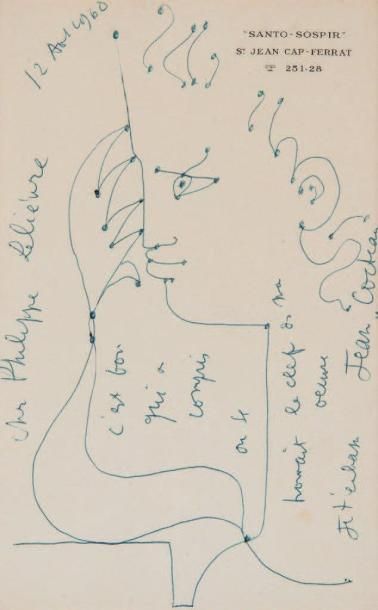 "SANTO-SOSPIR"
ST JEAN CAP-FERRAT
251-28
12 1960
cher Philippe Lelièvre
c'est bon
qui a
compris
ou le
trouvait la clef de ma
oeuvre
Je t'embrasse
Jean Cocteau